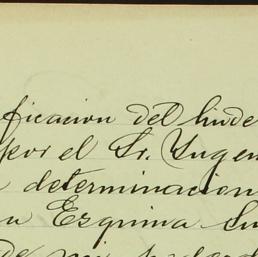 ficacion del linde
por el Sr. Yngen
determinacion
Esquina Su
de mi